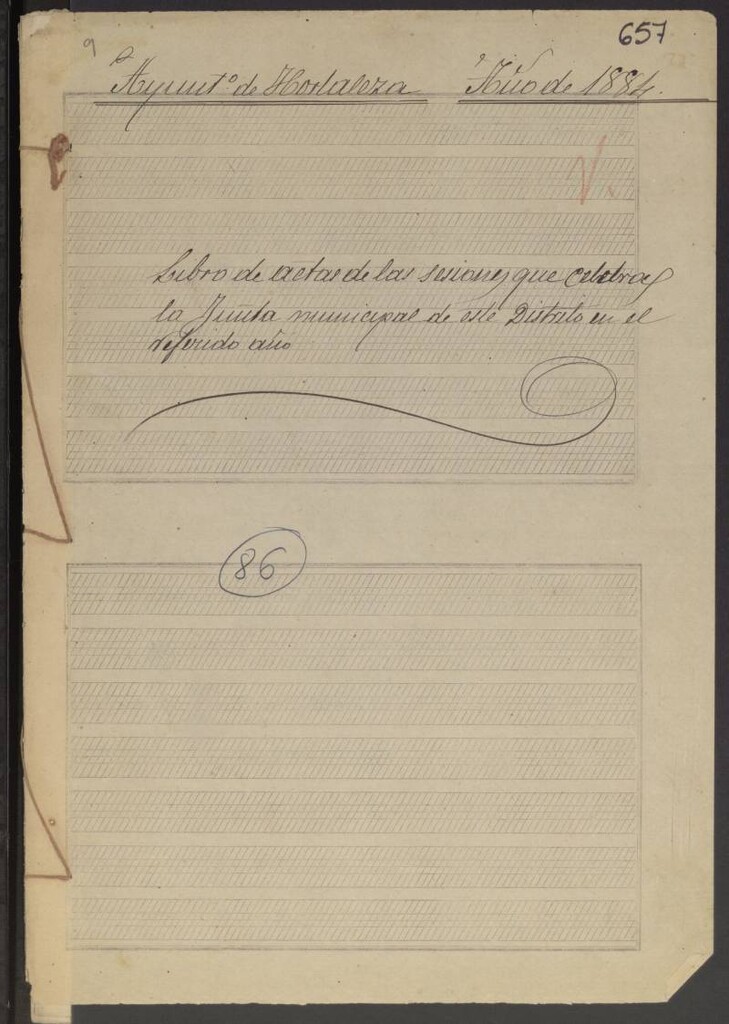 9
657
Ayuntº de Hortaleza Año de 1884.
V.
Libro de actas de las sesiones que celebra
la Junta municipal de este Distrito en el
referido año
86